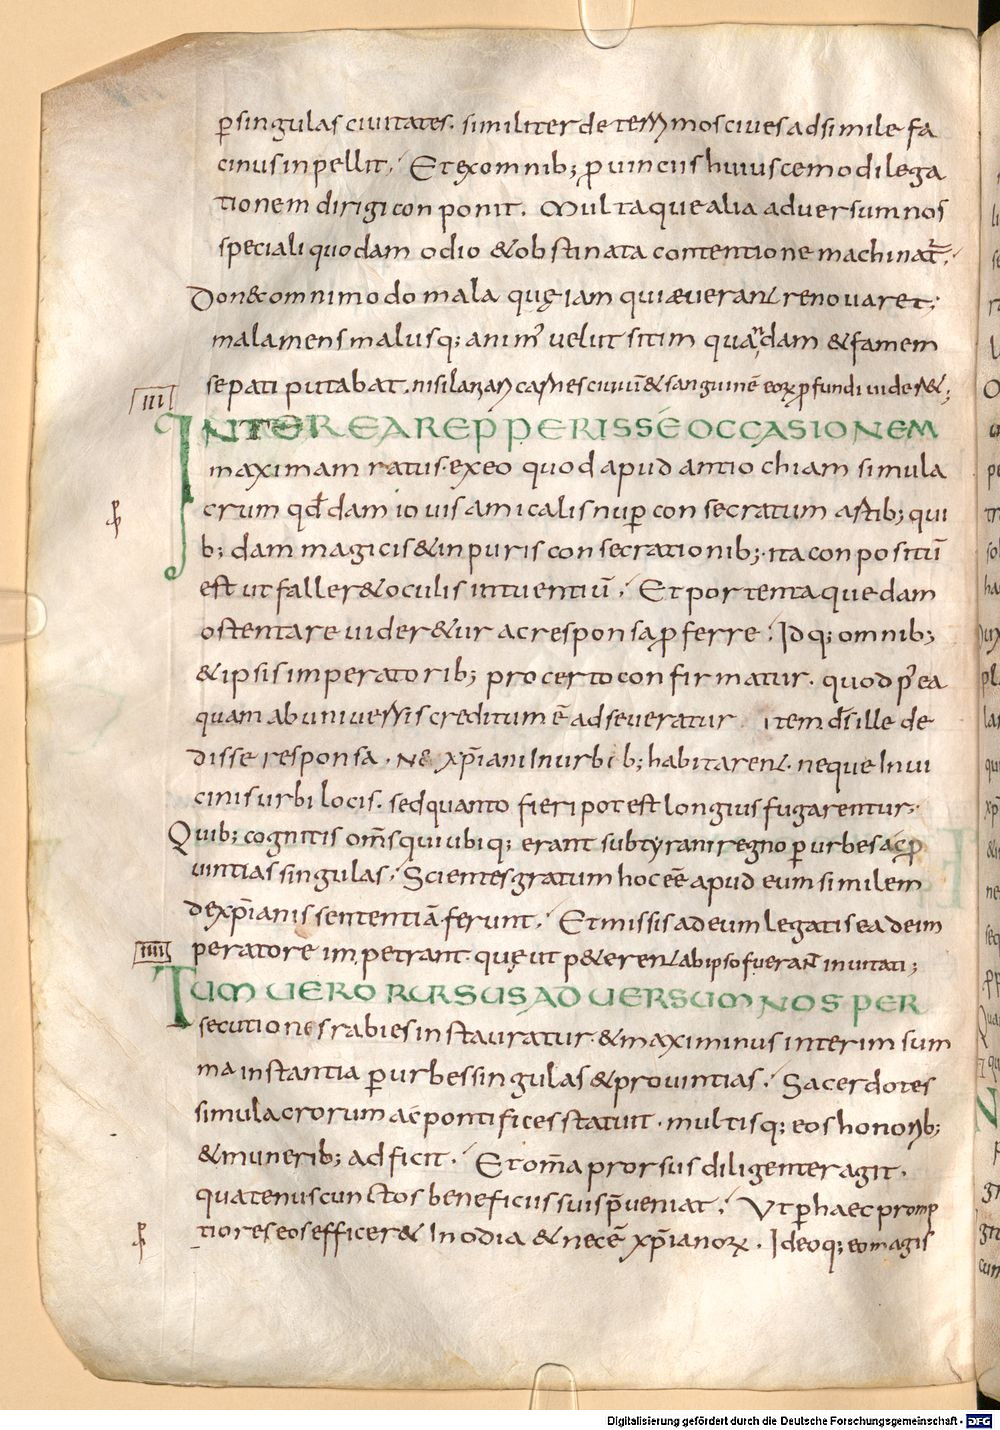 p̱singulas ciuitates. similiter de termmos ciues ad simile fa
cinus inpellit; Et ex omnib; ꝓuinciis huiuscemodi lega
tionem dirigi conponit. Multaque alia aduersum nos
speciali quodam odio &obstinata contentione machinat̄;
Don& omnimodo mala quę iam quieuerant renouaret;
mala mens malusq; anim' uelut sitim quandam &famem
se pati putabat. nisi lacerari carnes ciuiū & sanguinē eorꝝ ꝓfundi uider&;
III
INTEREA REPPERISSE OCCASIONEM
maximam ratus. ex eo quod apud antiochiam simula
crum qd̄dam iouis amicalis nuꝑ consecratum astib; qui
b;dam magicis &inpuris consecrationib;. ita conpositū
est ut faller& oculis intuentiū; Et portenta quedam
ostentare uider&ur ac responsa ꝓferre; Idq; omnib;
&ipsis imperatorib; pro certo confirmatur. quod p̄ ea
quam ab uniuersis creditum ē adseueratur item d̄s ille de
disse responsa. N& xp̄iani In urbib; habitarent. neque In ui
cinis urbi locis. sed quanto fieri potest longius fugarentur.
Quib; cognitis om̄s qui ubiq; erant sub tyranni regno ꝑ urbes ac ꝓ
uintias singulas; Scientes gratum hoc eē apud eum similem
de xp̄ianis sententiā ferunt; Et missis ad eum legatis ea de im
peratore impetrant. quę ut p&erent ab ipso fuerant inuitati;
IIII
TUM UERO RURSUS ADUERSUM NOS PER
secutionis rabies instauratur. &maximinus interim sum
ma instantia ꝑ urbes singulas &prouintias; Sacerdotes
simulacrorum ac pontifices statuit. multisq; eos honorib;
&munerib; adficit. Et om̄a prorsus diligenter agit.
quatenus cunctos beneficiis suis p̄ueniat; Ut ꝑ haec promp
tiores eos efficer& In odia & necē xp̄ianorꝝ. Ideoq; eo magis
Digitalisierung gefördert durch die Deutsche Forschungsgemeinschaft - DFG